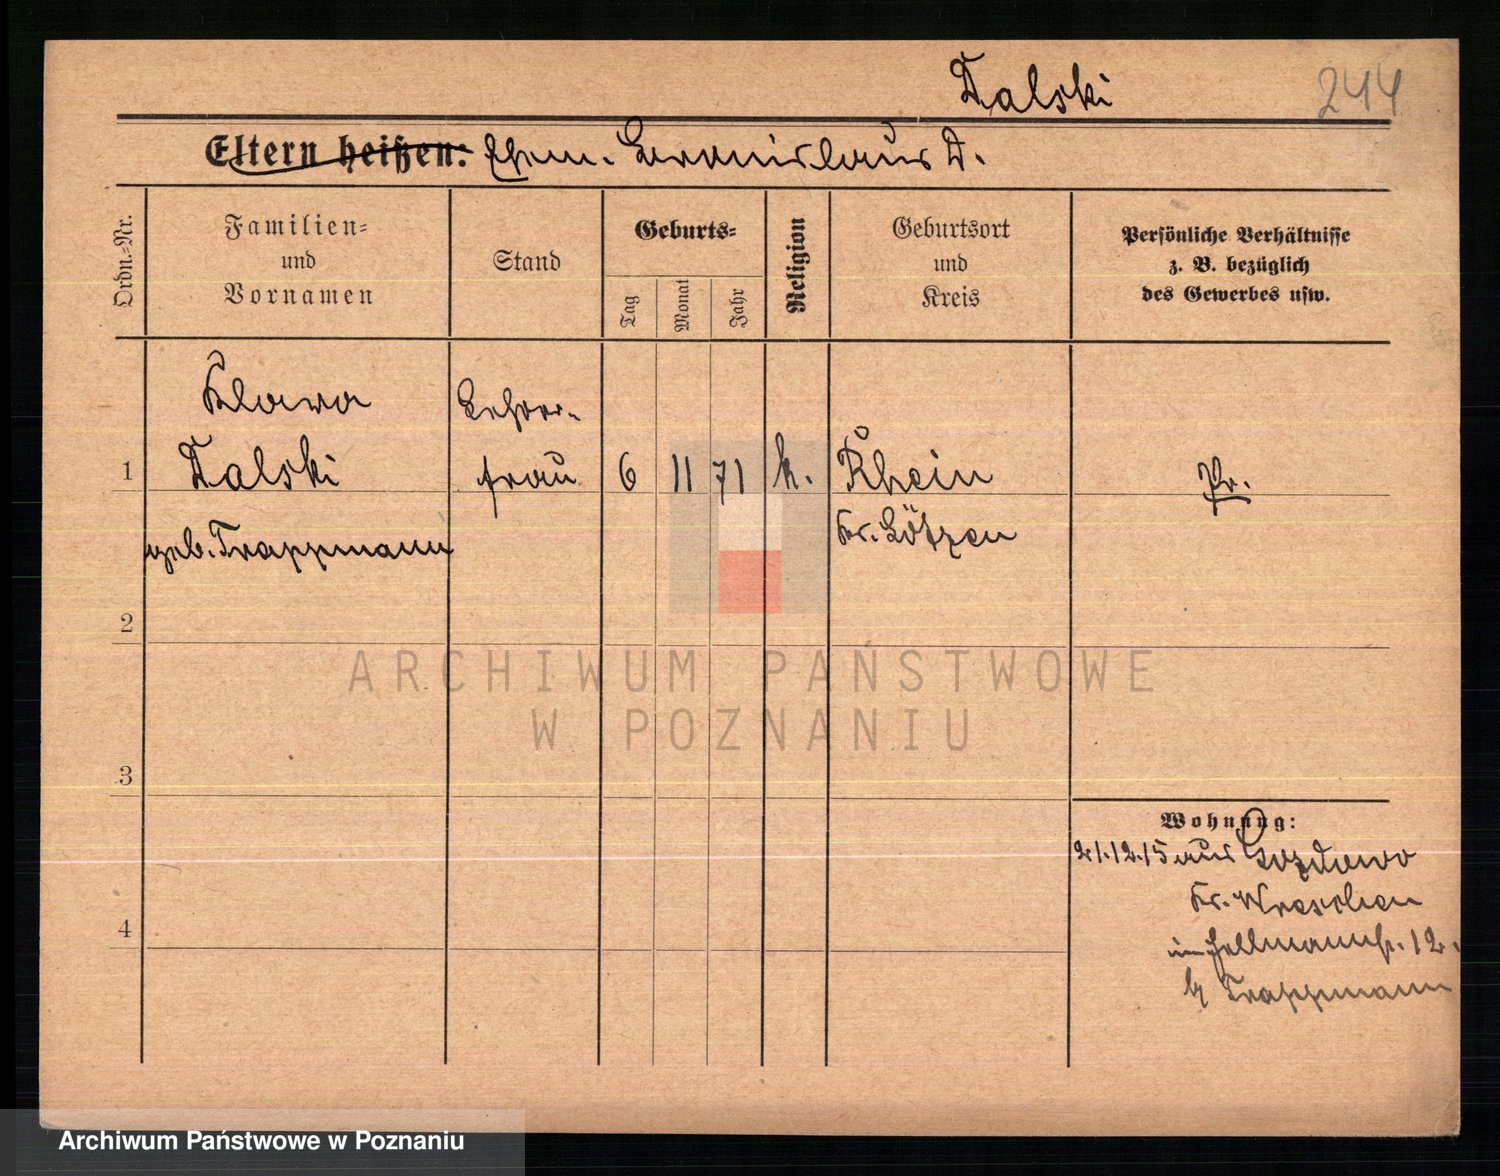 Dalski 244
Eltern heißen: Ehem. Bronislaus D.
Ordn.=Nr.
Familien=
und
Vornamen
Stand
Geburts=
Tag
Monat
Jahr
Religion
Geburtsort
und
Kreis
Persönliche Verhältnisse
z. B. bezüglich
des Gewerbes usw.
Klara Lehrer-
1 Dalski frau 6 11 71 k. Rhein Pr.
geb. Trappmann Kr. Lötzen
2
3
4
Wohnung:
21.12.15 aus Gozdowo
Kr. Wreschen
in Hellmannstr. 12.
b/ Trappmann
ARCHIWUM PAŃSTWOWE
W POZNANIU
Archiwum Państwowe w Poznaniu